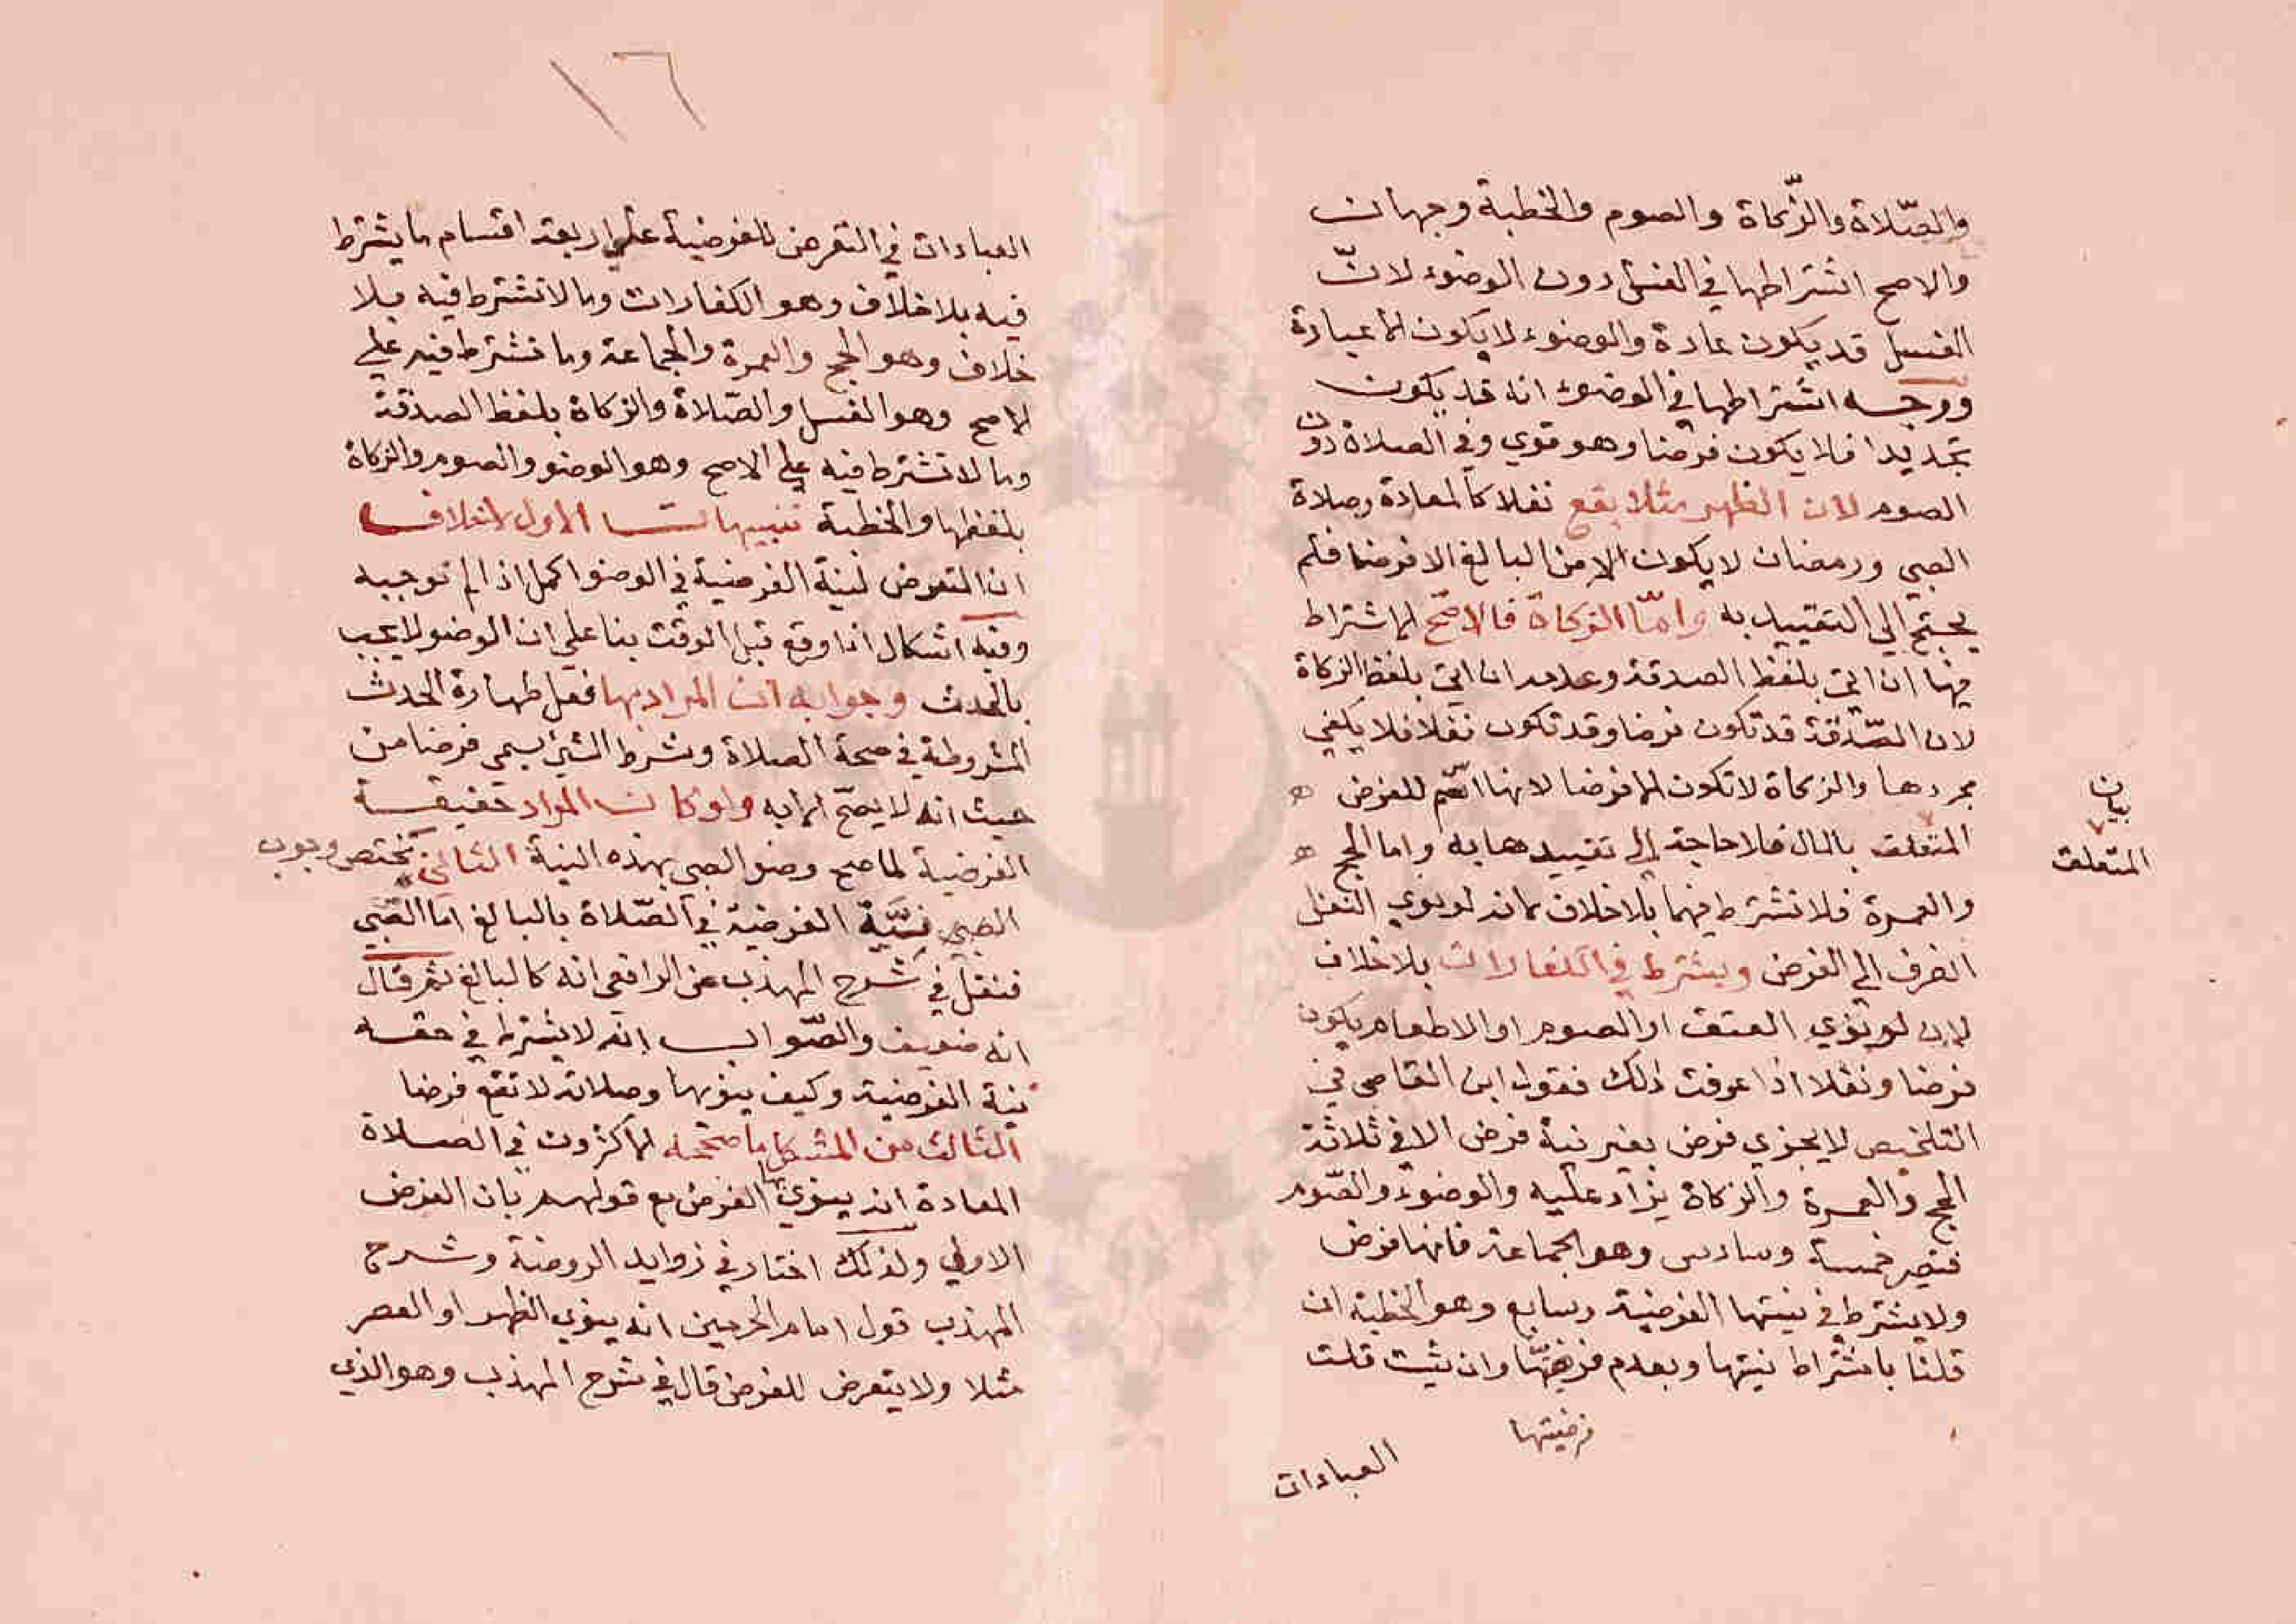 والصّلاة والزّكاة والصوم والخطبة وجهان
والاصح اشتراطها في الغسل دون الوضوء لانّ
الغسل قد يكون عادة والوضوء لا يكون الا عبادة
ووجه اشتراطها في الوضوء انه قد يكون
تجديدا فلا يكون فرضا وهو قوي وفي الصلاة دون
الصوم لان الظهر مثلا يقع نفلا كالمعادة وصلاة
الصبي ورمضان لا يكون الا من البالغ الا فرضا فلم
يحتج الى التقييد به وامّا الزكاة فالاصّح الاشتراط
فيها ان اتى بلفظ الصدقة وعدمه ان اتى بلفظ الزكاة
لان الصّدقة قد تكون فرضا وقد تكون نفلا فلا يكفي
مجردها والزكاة لا تكون الا فرضا لانها اسم للفرض
بيان
المتعلق
المتعلق بالمال فلا حاجة الى تقييدها به واما الحج
والعمرة فلا تشترط فيهما بلا خلاف لانه لو نوي النفل
انصرف الى الفرض ويشترط في الكفارات بلا خلاف
لان لو نوي العتق او الصوم او الاطعام يكون
فرضا ونفلا اذا عرفت ذلك فقول ابن القاص في
التلخيص لا يجزي فرض بغير نية فرض الا في ثلاثة
الحج والعمرة والزكاة يزاد عليه والوضوء والصّوم
فتصير خمسة وسادس وهو الجماعة فانها فرض
ولا يشترط في نيتها الفرضية وسابع وهو الخطبة ان
قلنا باشتراط نيتها وبعدم فرضيّتها وان شئت قلت
فرضيتها
العبادات
١٦
العبادات في التعرض للفرضية على اربعة اقسام ما يشترط
فيه بلا خلاف وهو الكفارات وما لا تشترط فيه بلا
خلاف وهو الحج والعمرة والجماعة وما تشترط فيه على
الاصح وهو الغسل والصّلاة والزكاة بلفظ الصدقة
وما لا تشترط فيه على الاصح وهو الوضو والصوم والزكاة
بلفظها والخطبة تنبيهات الاول لا خلاف
ان التعرض لنية الفرضية في الوضوا كمل اذا لم نوجبه
وفيه اشكال اذا وقع قبل الوقت بنا على ان الوضو لا يجب
بالحدث وجوابه ان المراد بها فعل طهارة الحدث
المشروطة في صحة الصلاة وشرط الشئ يسمى فرضا من
حيث انه لا يصّح الا به ولو كان المراد حقيقة
الفرضية لما صح وضو الصبي بهذه النية الثاني تختص وجوب
الصبي نيَّة الفرضية في الصّلاة بالبالغ اما الصّبي
فنقل في شرح المهذب عن الرافعي انه كالبالغ ثم قال
انه ضعيف والصّواب انه لا يشترط في حقه
نية الفرضية وكيف ينويها وصلاته لا تقع فرضا
الثالث من المشكل ما صححه الاكثرون في الصلاة
المعادة انه ينوي بها الفرض مع قولهم بان الفرض
الاولي ولذلك اختار في زوايد الروضة وشرح
المهذب قول امام الحرمين انه ينوي الظهر او العصر
مثلا ولا يتعرض للفرض قال في شرح المهذب وهو الذي